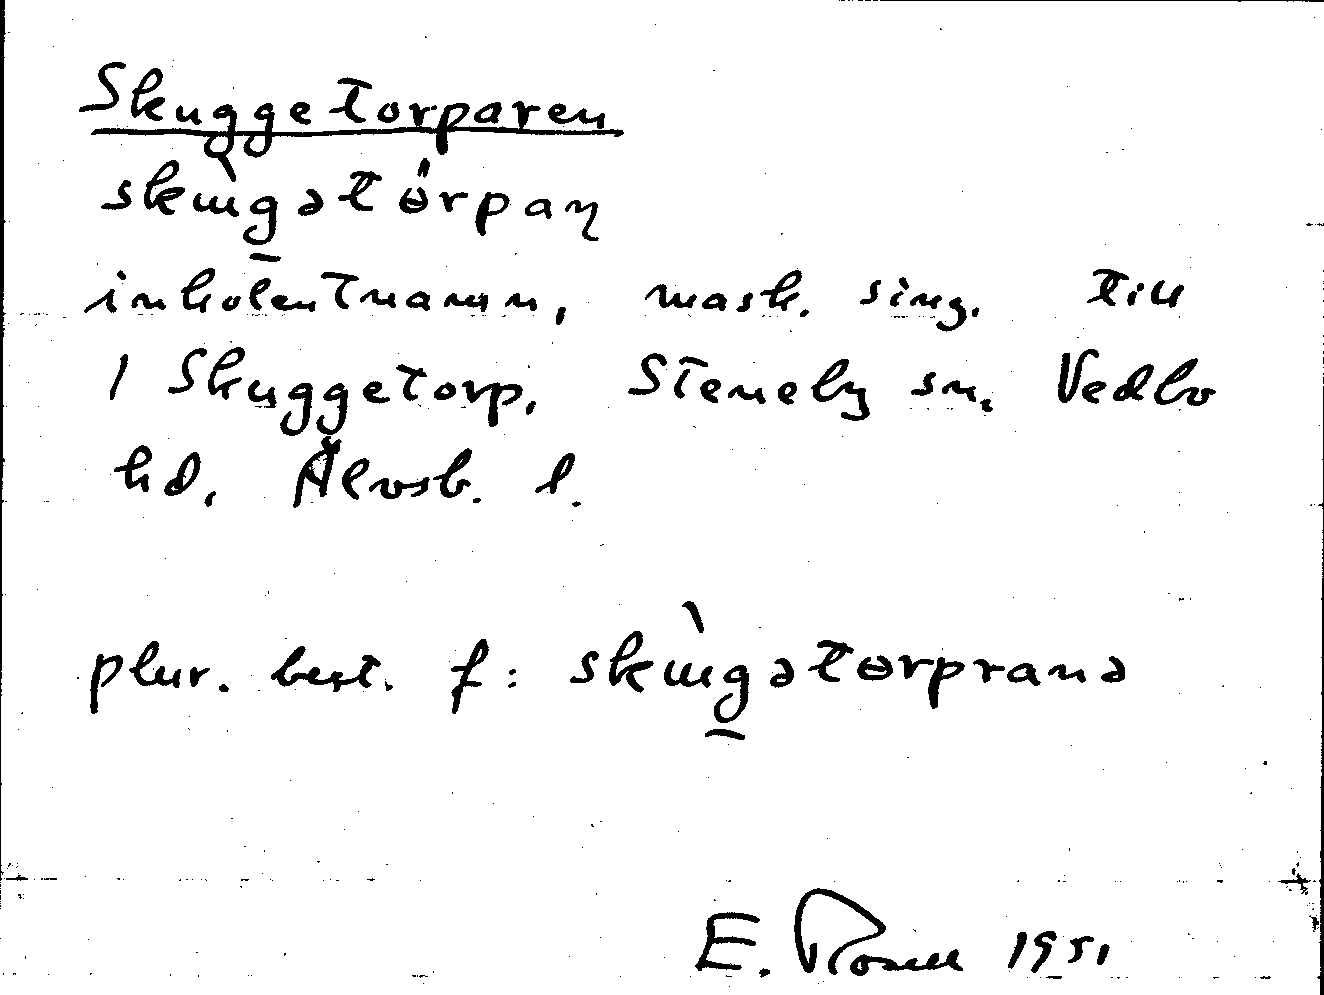 Skuggetorparen
skùg̱ətɵ́rpaɳ
inkolentnamn, mask. sing. till
1 Skuggetorp, Steneby sn, Vedbo
hd, Älvsb. l.
plur. best. f: skùg̱ətɵrpranə
E. Rosell 1951